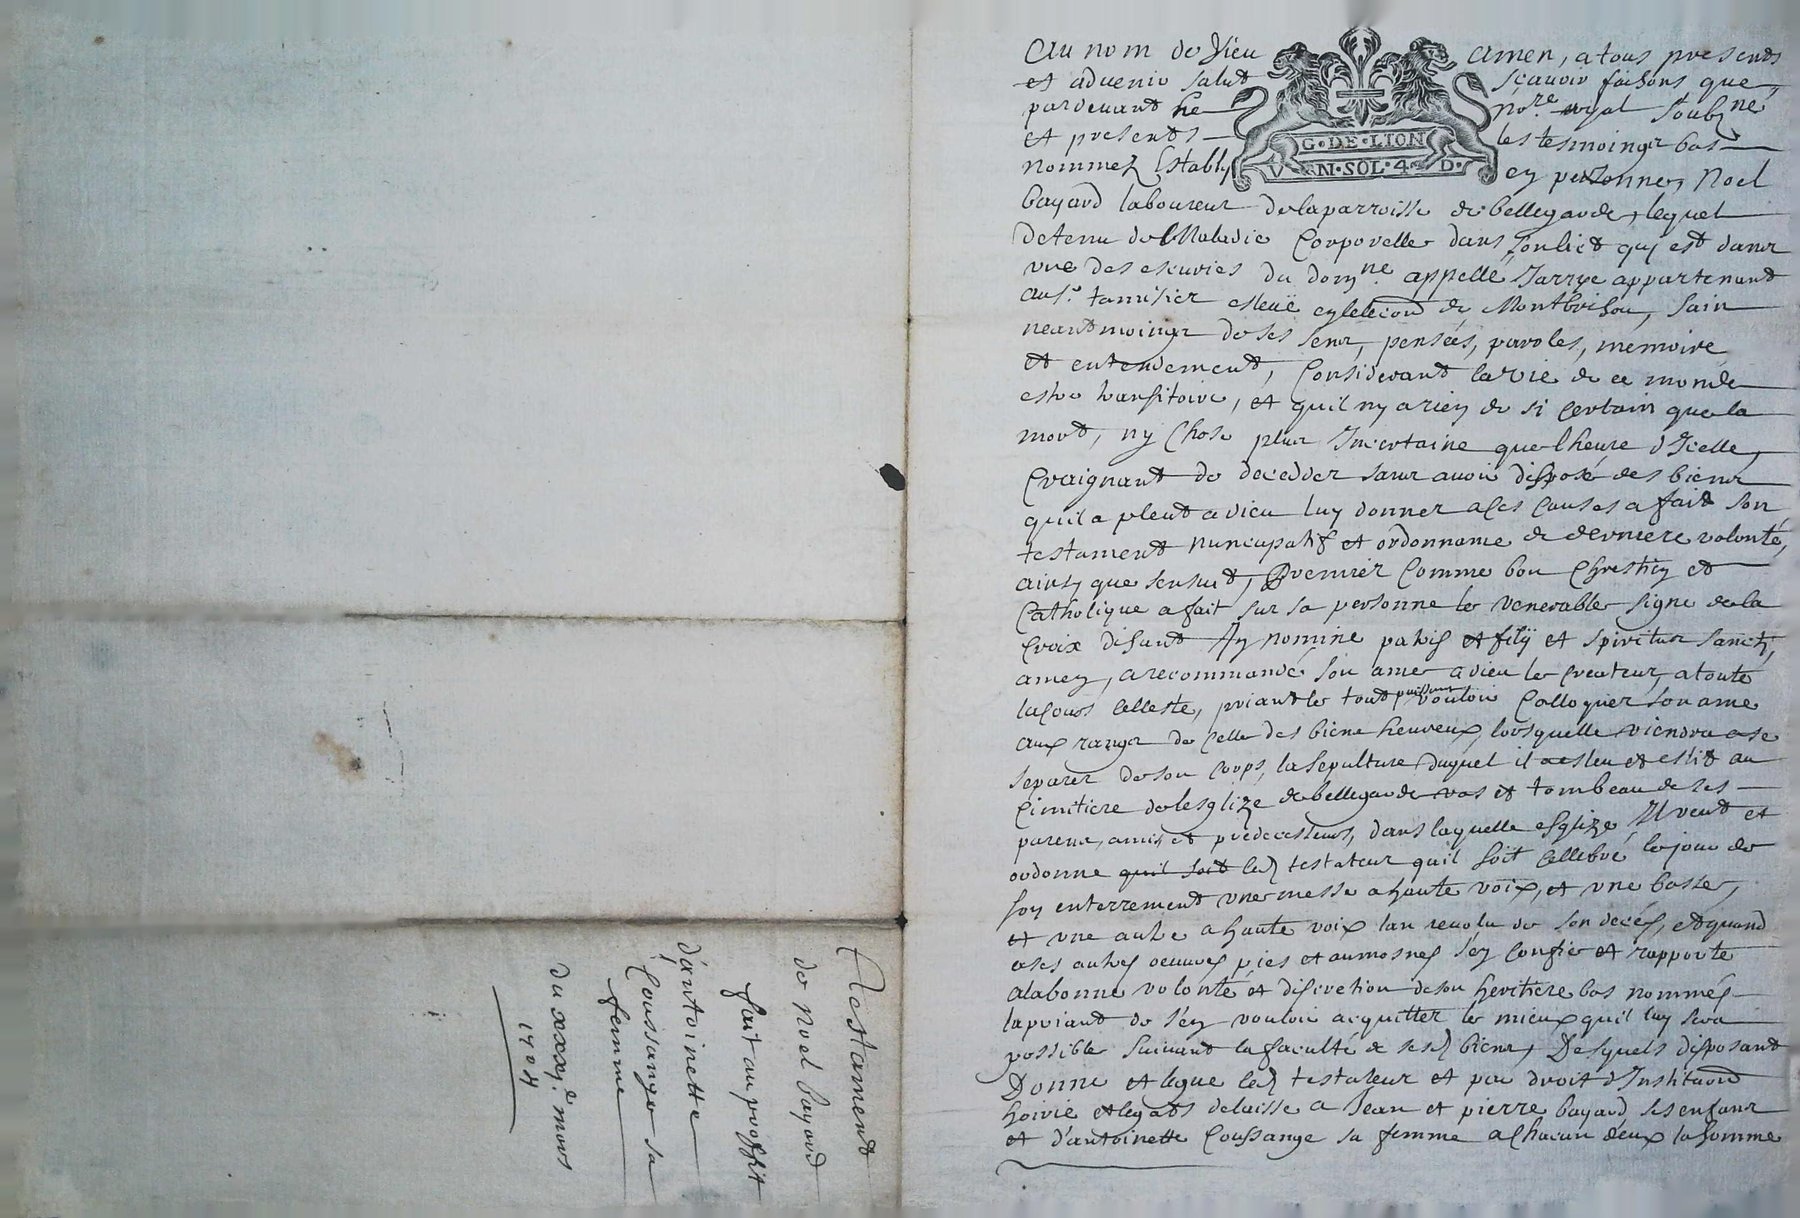 Au nom de Dieu amen, a tous presents
et advenir salut sçavoir faisons que,
pardevant le no.re royal soubz.ne
et presents les tesmoings bas
nommez Estably en personne, Noel
G·DE·LION
VN·SOL·4·D·
bayard laboureur de la parroisse de bellegarde, lequel
detenu de Maladie Corporelle dans son lict qui est dans
une des escuries du dom.ne appellé Jarrye appartenant
au s.r tamisier esleu en lelection de Montbrison, sain
neantmoings de ses sens, pensées, paroles, memoire
et entendement, Considerant la vie de ce monde
estre transitoire, et quil ny a rien de si certain que la
mort, ny Chose plus Incertaine que lheure dIcelle,
Craignant de decedder sans avoir disposé des biens
quil a pleut a dieu luy donner a ces causes a fait son
testament nuncupatif et ordonnance de derniere volonté,
ainsy que sensuit, Premier Comme bon Chrestien et
Catholique a fait sur sa personne le venerable signe de la
Croix disant In nomine patris et filij et spiritus sancti,
amen, a recommandé son ame a dieu le createur, a toute
la Cour Celleste, priant le tout puissant vouloir Colloquer son ame
aux rangs de celle des biens heureux, lorsquelle viendra a se
separer de son corps, la sepulture duquel il a esleu et eslit au
Cimitiere de lesglize de bellegarde vas et tombeau de ses
parens, amis et predecesseurs, dans laquelle esglize Il veut et
ordonne quil soit led testateur quil soit cellebré le jour de
son enterrement une messe a haute voix, et une basse,
et une autre a haute voix lan revolu de son decés, et quand
a ses autres oeuvres pies et aumosnes s'en confie et rapporte
a la bonne volonté et discretion de son heritiere bas nommés
la priant de s'en vouloir acquitter le mieux quil luy sera
possible suivant la faculté de sesd biens, Desquels disposant
Donne et legue led testateur et par droit dInstitution
hoirie et legats delaisse a Jean et pierre bayard ses enfans
et d'antoinette Coussange sa femme a Chacun deux la somme
Testament
de noel bayard
fait au proffit
d'antoinette
Coussange sa
femme
du xxxj.e mars
1704